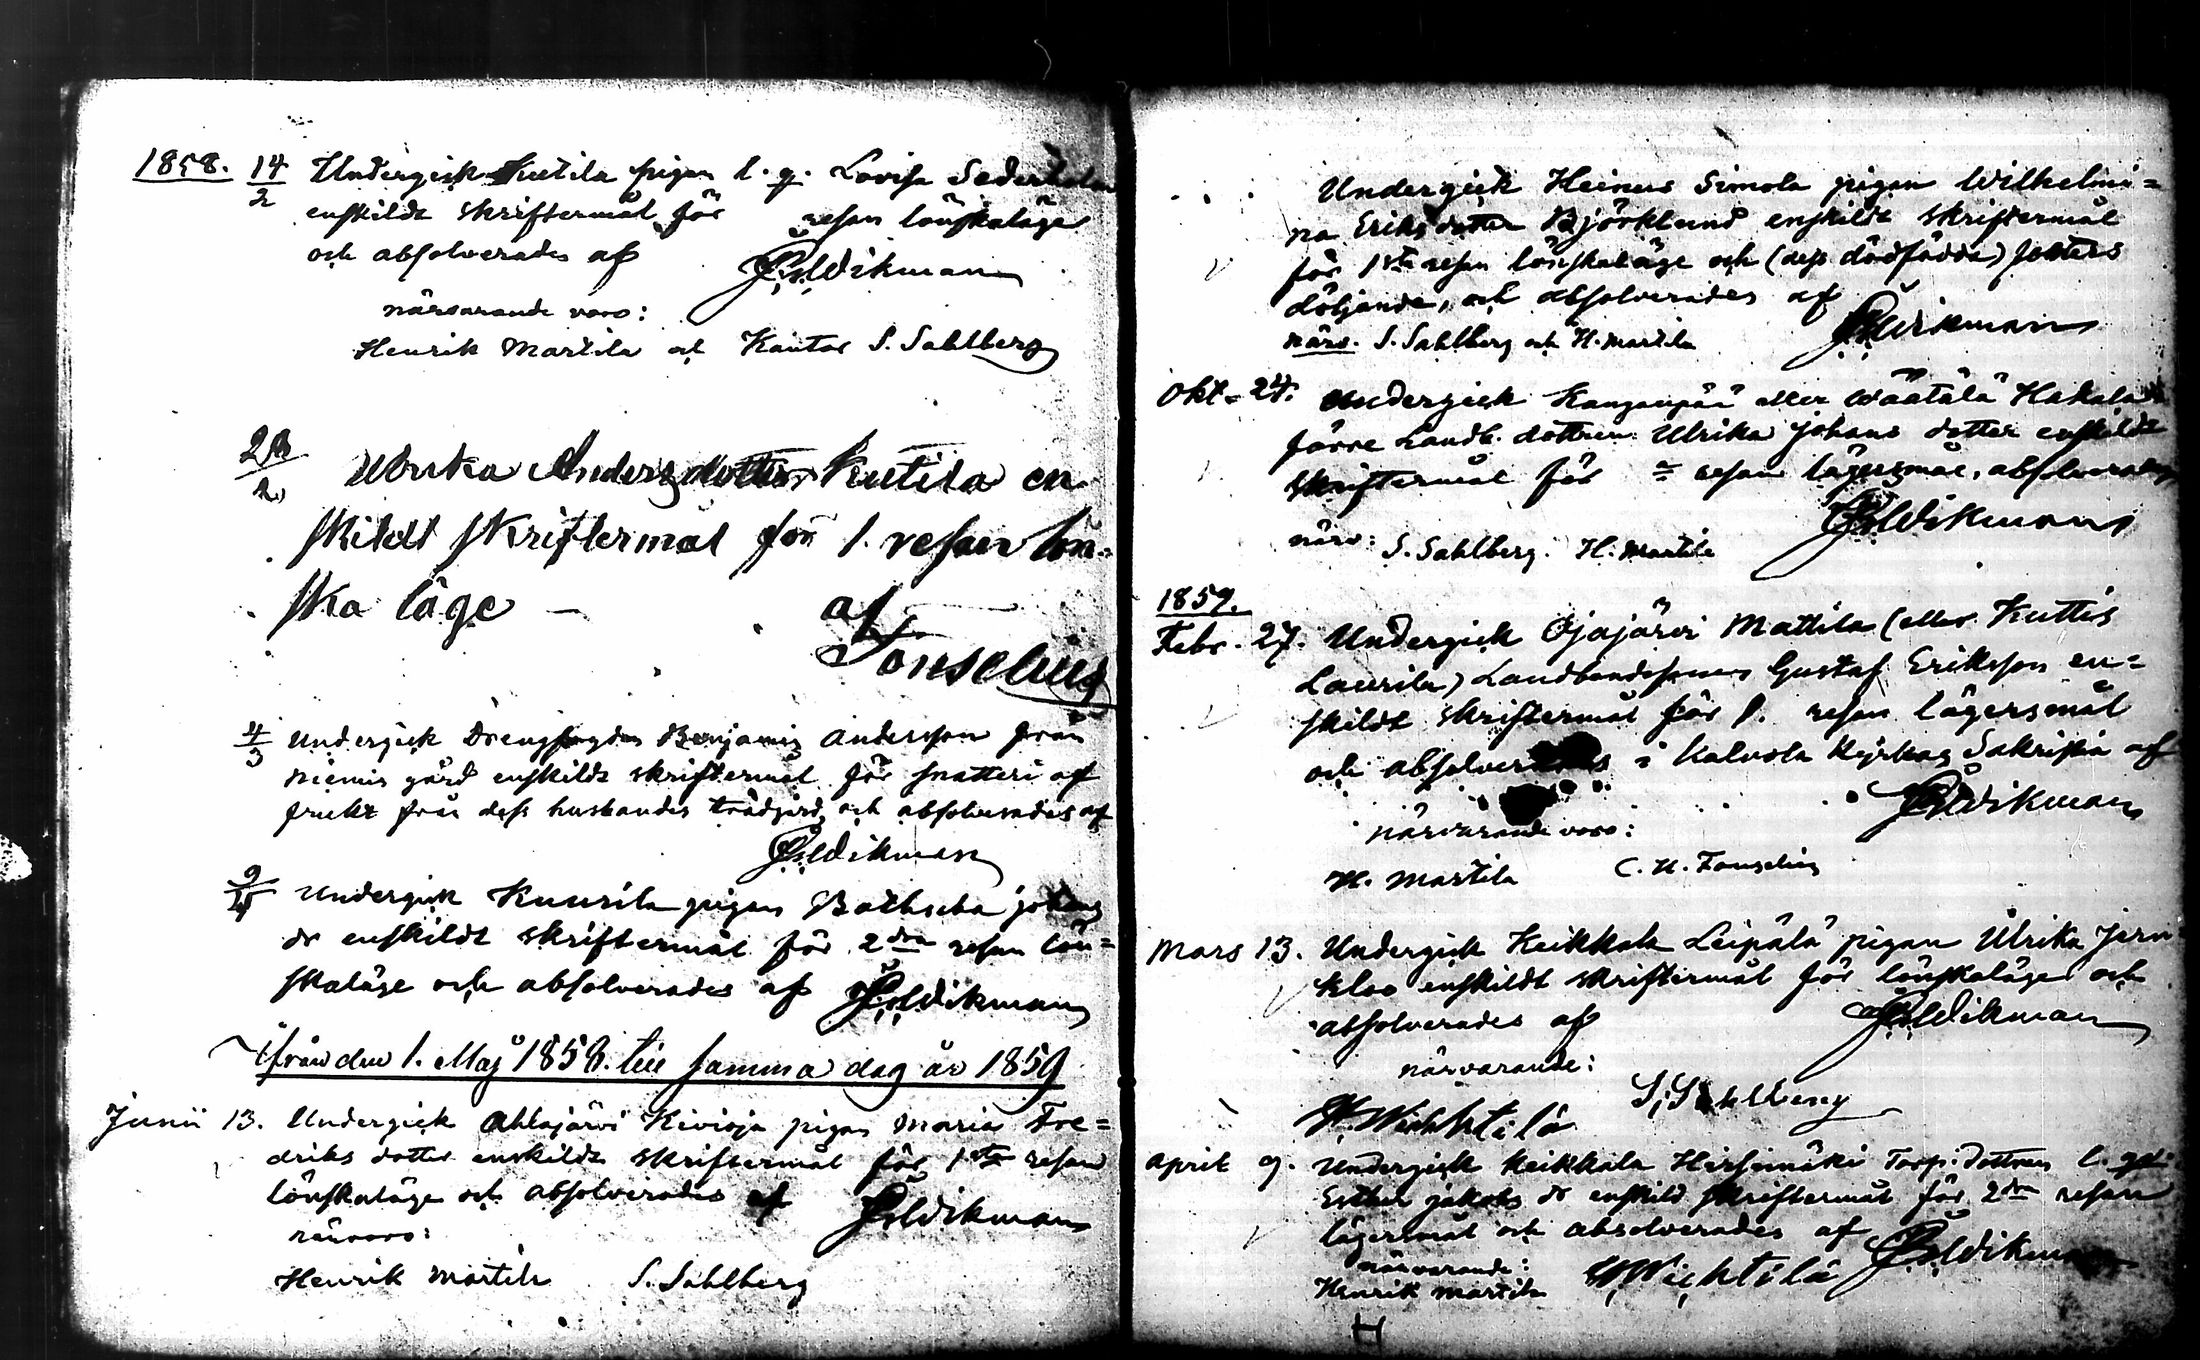 1858. 14/2 Undergick Kutila pigan l. q. Lovisa
enskildt skriftermål för resan lönskaläge
och absolverades af Wikman
närvarande voro:
Henrik Martila och Kantor S. Sahlberg
Ulrika Andersdotter Kutila en-
skildt skriftermål för 1. resan lön-
ska läge —
af
Fonselius
4/3 Undergick Drengfogden Benjamin Andersson från
Niemis gård enskildt skriftermål för snatteri af
frukt från dess husbondes trädgård och absolverades af
Wikman
Undergick Kuurila pigan Bathseba Johans
dr enskildt skriftermål för 2dra resan lön-
skaläge och absolverades af Wikman
ifrån den 1. Maj 1858. till samma dag år 1859
Junii 13. Undergick Ahlajärvi Kivioja pigan Maria Fre-
driks dotter enskildt skriftermål för 1sta resan
lönskaläge och absolverades af Wikman
närvoro:
Henrik Martila S. Sahlberg
Undergick Heinus Simola pigan Wilhelmi-
na Eriksdotter Björklund enskildt skriftermål
för 1sta resan lönskaläge och (dess dödfödda) fosters
döljande, och absolverades af
Wikman
närv. S. Sahlberg och H. Martila
Okt. 24. Undergick Kanganpää eller Wäätälä Hakala
förre Landb. dottren Ulrika Johans dotter enskildt
skriftermål för resan lägersmål, absolverades
Wikman
närv: S. Sahlberg. H. Martila
1859.
Febr. 27. Undergick Ojajärvi Mattila (eller Kuttis
Laurila) Landbondesonen Gustaf Eriksson en-
skildt skriftermål för 1. resan lägersmål
och absolverades i Kalvola Kyrkas Sakristia af
Wikman
närvarande voro:
H. Martila C. U. Fonselius
Mars 13. Undergick Keikkala Leipälä pigan Ulrika Jern-
klo enskildt skriftermål för lönskaläge och
absolverades af Wikman
närvarande:
S. Sahlberg
Wichtilä
April 9. Undergick Keikkala Hirsimäki Torp. dottren
Esther Jakobs dr enskild skriftermål för 2dra resan
lägersmål och absolverades af
närvarande: Wikman
Henrik Martila Wichtilä